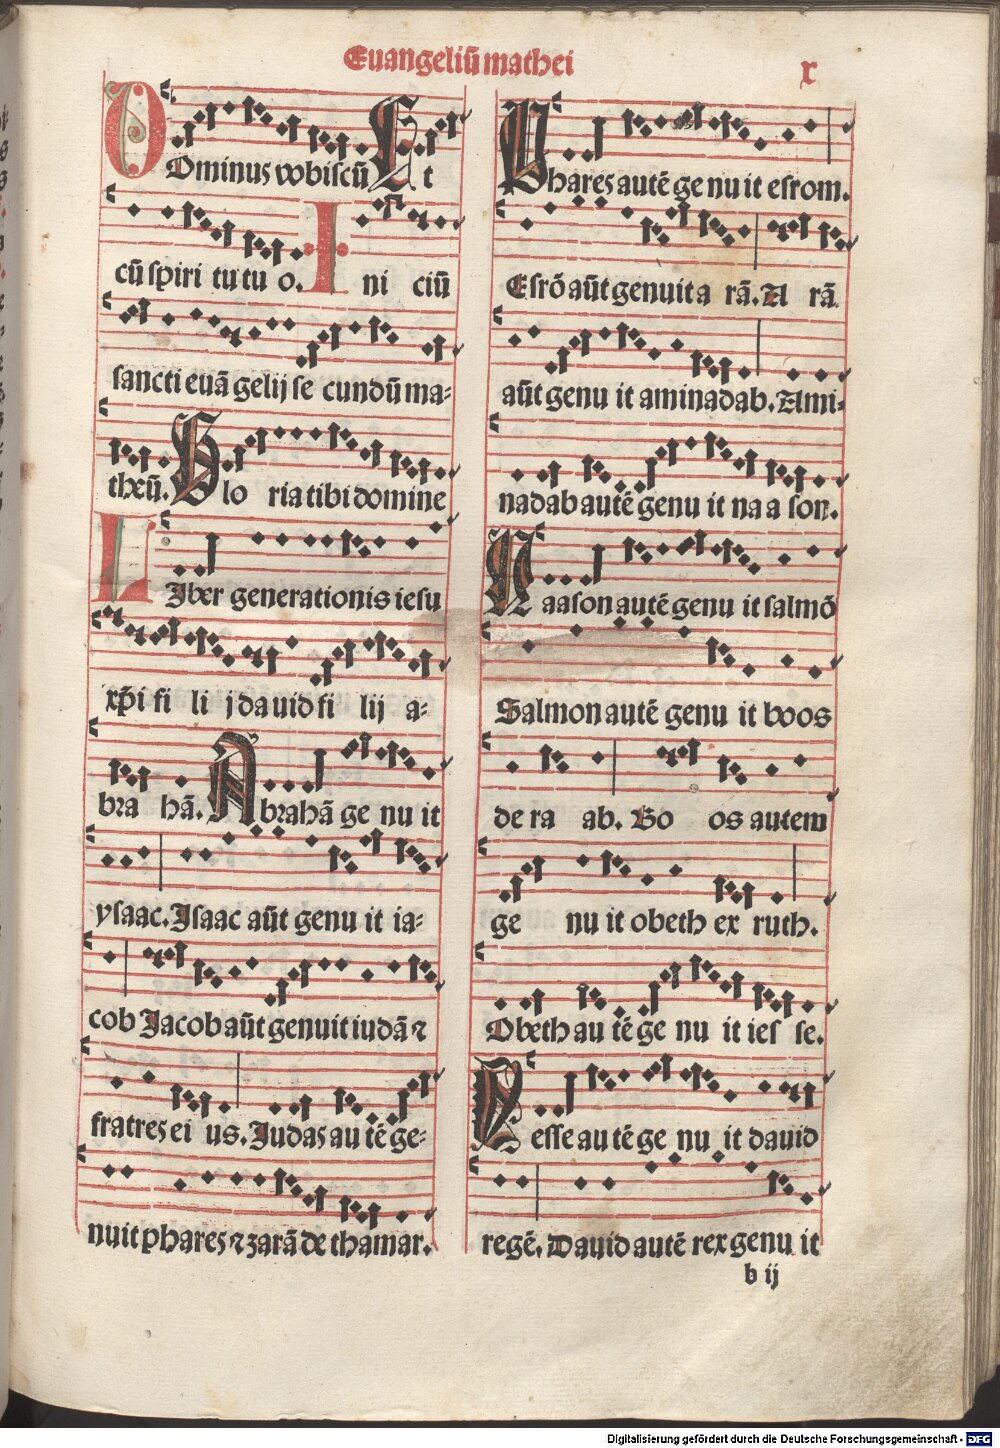 Euangeliū mathei
x
DOminus vobiscū Et
cū spiri tu tu o. I ni ciū
sancti euā gelij se cundū ma-
theū. Glo ria tibi domine
LIber generationis iesu
xp̄i fi li j dauid fi lij a-
bra hā. Abrahā ge nu it
ysaac. Isaac aūt genu it ia-
cob Jacob aūt genuit iudā ⁊
fratres ei us. Judas au tē ge-
nuit phares ⁊ zarā de thamar.
Phares autē ge nu it esrom.
Esrō aūt genuit a rā. A rā
aūt genu it aminadab. Ami-
nadab autē genu it na a son.
Naason autē genu it salmō
Salmon autē genu it boos
de ra ab. Bo os autem
ge nu it obeth ex ruth.
Obeth au tē ge nu it ies se.
Iesse au tē ge nu it dauid
regē. Dauid autē rex genu it
b ij
Digitalisierung gefördert durch die Deutsche Forschungsgemeinschaft - DFG